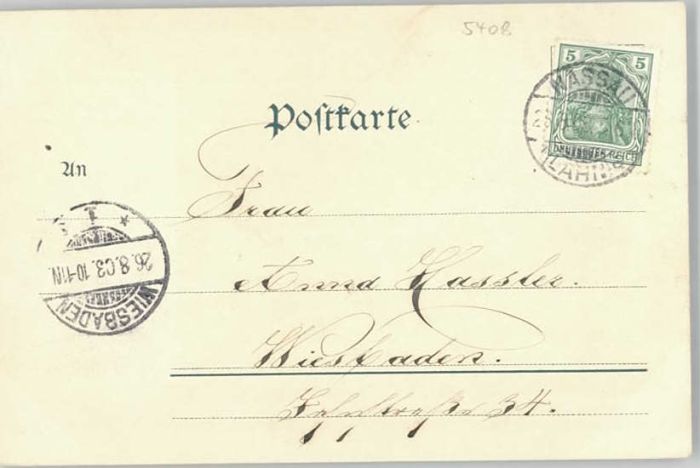 5408
5 5
NASSAU
DEUTSCHES REICH
(LAHN)
Postkarte
An
Frau
Anna Hassler.
Wiesbaden.
34.
26.8.03. 10-11N.
WIESBADEN